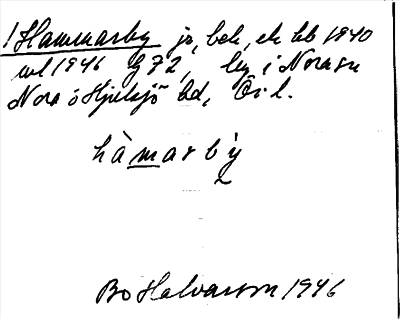 ! Hammarby jo, bek, ek kb 1940
uel 1946 G 72, lig i Nora sn
Nora o Hjulsjö bd, Ör l.
hàmarbỳ
Bo Halvarson 1946